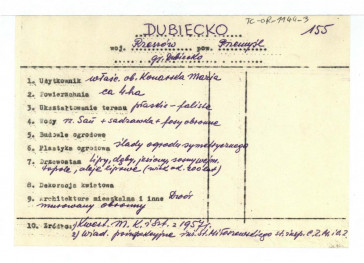 TC-OP-1144-3
DUBIECKO 155
woj. Rzeszów pow. Przemyśl
gr. Dubiecko
1. Użytkownik właśc. ob. Konarska Maria
2. Powierzchnia ca 4 ha
3. Ukształtowanie terenu płaskie - faliste
4. Wody rz. San + sadzawka + fosy obronne
5. Budowle ogrodowe
6. Plastyka ogrodowa ślady ogrodu symetrycznego
7. Drzewostan lipy, dęby, jesiony, sosny wejm.
topole, aleje
8. Dekoracja kwiatowa
9. Architektura mieszkalna i inna Dwór
murowany obronny
10. Źródła: 1/ Kwest. M. K. i Szt. z 1957 r.
2/ Wiad. St. Miłoszewskiego